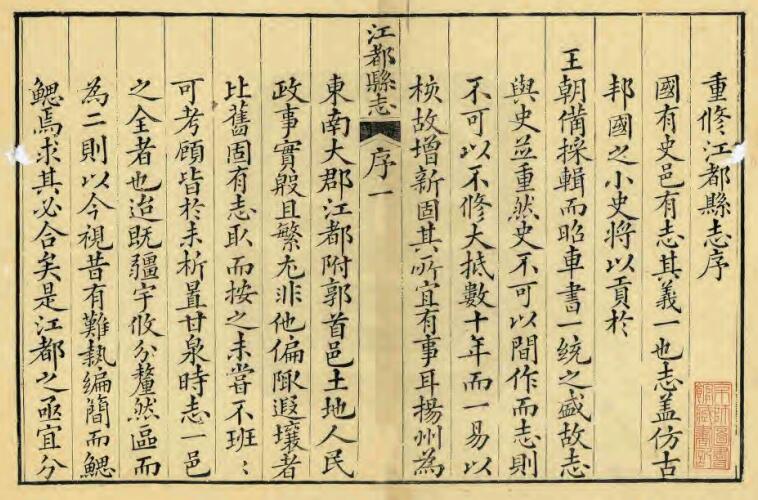 重修江都縣志序
國有史邑有志其義一也志盖仿古
邦國之小史將以貢於
王朝備採輯而昭車書一統之盛故志
與史並重然史不可以間作而志則
不可以不修大抵數十年而一易以
核故增新固其所宜有事耳揚州為
江都縣志
序一
東南大郡江都附郭首邑土地人民
政事實殷且繁尤非他偏陬遐壤者
比舊固有志取而按之未嘗不班〻
可考顧皆於未析置甘泉時志一邑
之全者也迨既疆宇攸分釐然區而
為二則以今視昔有難執編簡而鰓
鰓焉求其必合矣是江都之亟宜分